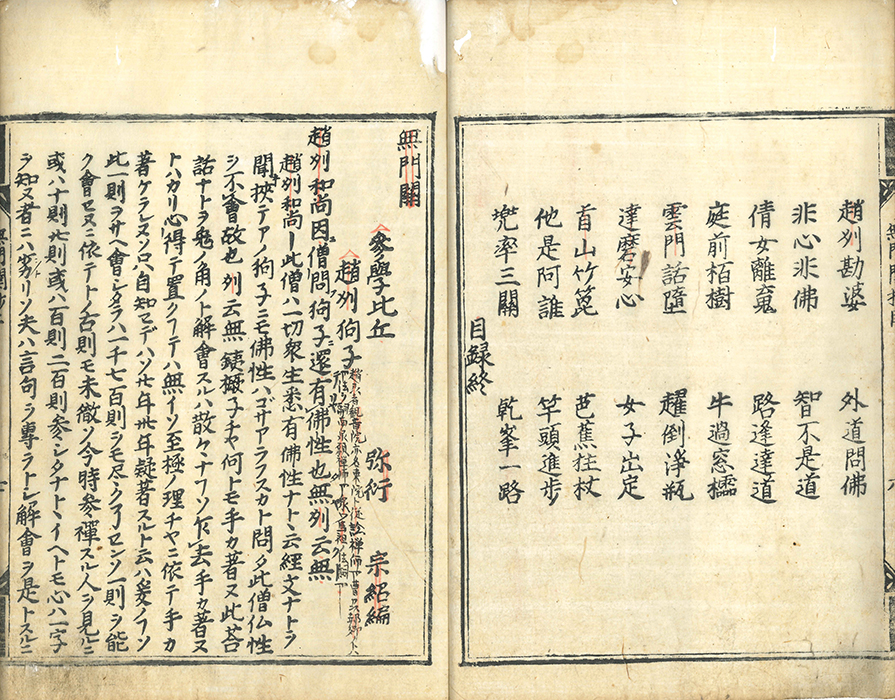 趙州勘婆 外道問佛
非心非佛 智不是道
倩女離䰟 路逢達道
庭前栢樹 牛過窓櫺
雲門話墮 趯倒淨瓶
達磨安心 女子出定
首山竹篦 芭蕉拄杖
他是阿誰 竿頭進歩
兜率三關 乾峯一路
目録終
無門關
參學比丘 弥衍 宗紹編
趙州狗子
趙州和尚因僧問狗子還有佛性也無州云無
趙州和尚ー此僧ハ一切衆生悉有佛性ナトヽ云経文ナトヲ
聞挾テアノ狗子ニモ佛性ハゴサアラフスカト問タ此僧仏性
シ不會故也州云無銕橛子チヤ何トモ手カ著ヌ此荅
話ナトヲ兎ノ角ノト解會スルハ散々ナフソ去手カ著ヌ
トハカリ心得テ置クフテハ無イソ至極ノ理チヤニ依テ手カ
著ケラレヌソロハ自知マデハソ廿年卅年疑著スルト云ハ爰ノフソ
此一則ヲサヘ會シタラハ一千七百則ヲモ尽クセンソ一則ヲ能
ク會セヌニ依テトノ古則モ未徹ソ今時參禪スル人ヲ見ルニ
或ハ十則廿則或ハ百則二百則參シタナトヽイヘトモ心ハ一字
ヲ知ヌ者ニハ劣リソ夫ハ言句ヲ專ラトシ解會ヲ是トスルニ